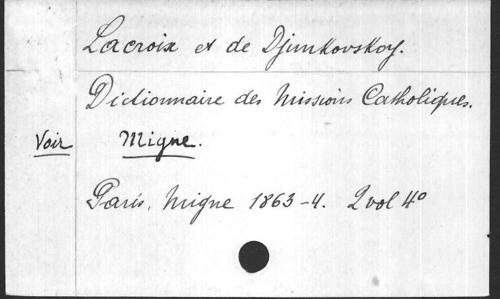 Lacroix et de Djunkovskoy.
Dictionnaire des Missions Catholiques.
Voir Migne.
Paris, Migne 1863-4. 2 vol 4°